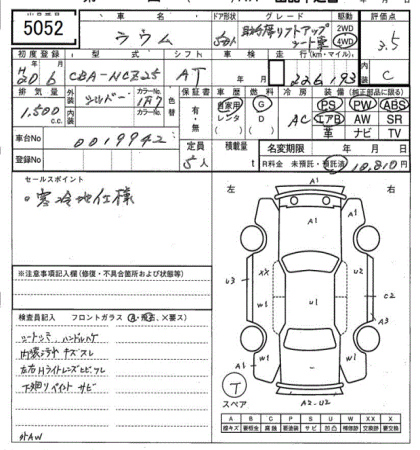 5052
車名
ドア形状
グレード
駆動
評価点
ラウム
5D
助手席リフトアップ
シート車
2WD
4WD
3.5
初度登録
型式
シフト
車検
走行(km・マイル)
内装
H20.6
CBA-NCZ25
AT
年 月
226,193
C
排気量
外装
カラーNo.
色替
保証書
車歴
燃料
冷房
装備(純正部品に限る)
1,500 c.c.
シルバー
1F7
有・無
自家用
レンタ
G
D
AC
PS PW ABS
エアB AW SR
革 ナビ TV
車台No
0019942
定員
積載量
名変期限 年 月 日
登録No
5人
t
R料金 未預託・預託済 10,810円
セールスポイント
寒冷地仕様
左
右
※注意事項記入欄(修復・不具合箇所および状態等)
検査員記入
フロントガラス
シートシミ ハンドルハゲ
内装汚れ キズ スレ
左右Hライトレンズヒビ スレ
下廻りペイント サビ
外AW
A1
A1
A1
U3
XX
W1
U1
C2
A3
A1
W1
W1
A1
A2-U2
T
スペア
A B C P S U W X XX